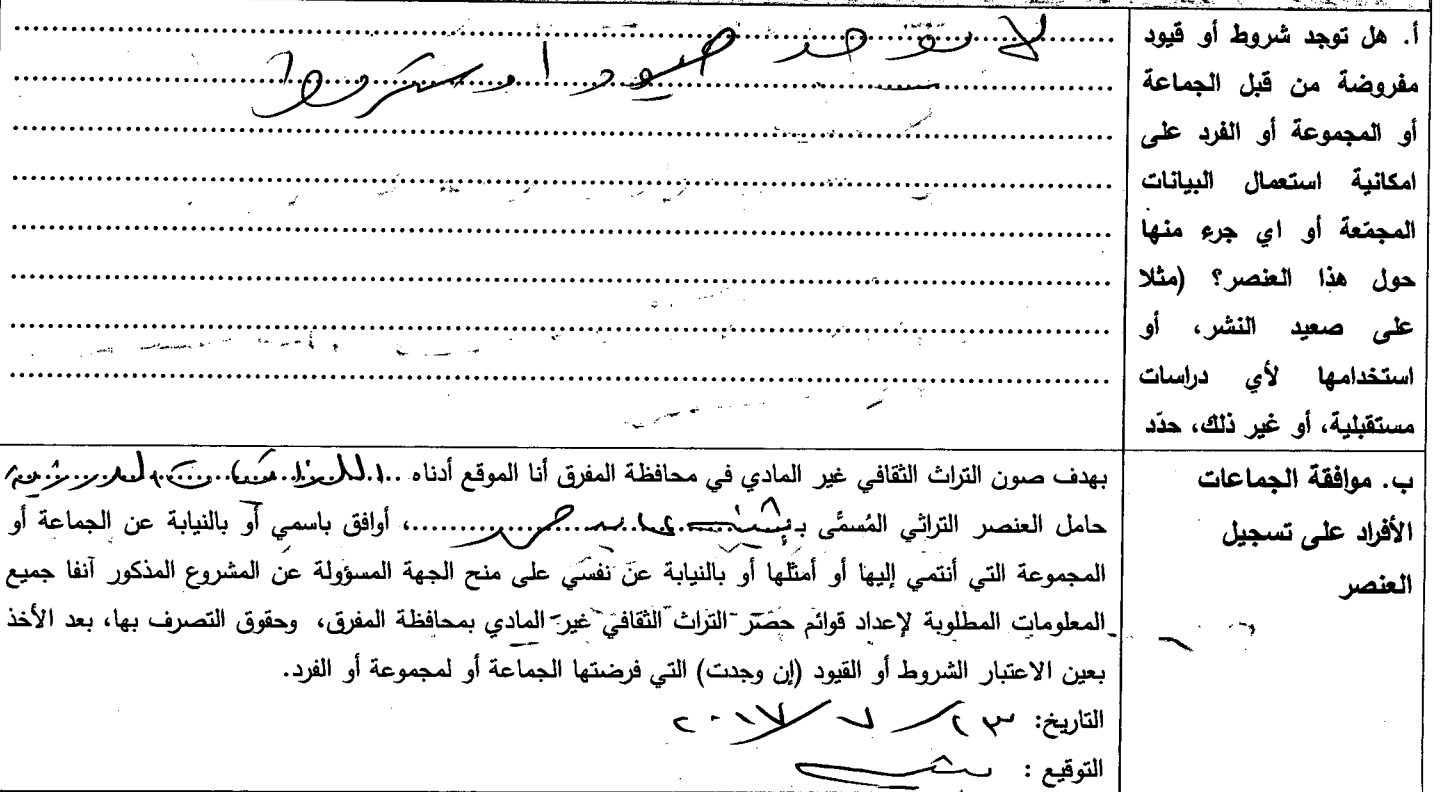 أ. هل توجد شروط أو قيود
مفروضة من قبل الجماعة
أو المجموعة أو الفرد على
امكانية استعمال البيانات
المجمّعة أو اي جرء منها
حول هذا العنصر؟ (مثلا
على صعيد النشر، أو
استخدامها لأي دراسات
مستقبلية، أو غير ذلك، حدّد
لا يوجد قيود او شروط
ب. موافقة الجماعات
الأفراد على تسجيل
العنصر
بهدف صون التراث الثقافي غير المادي في محافظة المفرق أنا الموقع أدناه
حامل العنصر التراثي المُسمَّى بـ ، أوافق باسمي أو بالنيابة عن الجماعة أو
المجموعة التي أنتمي إليها أو أمثلها أو بالنيابة عن نفسي على منح الجهة المسؤولة عن المشروع المذكور آنفا جميع
المعلومات المطلوبة لإعداد قوائم حصر التراث الثقافي غير المادي بمحافظة المفرق، وحقوق التصرف بها، بعد الأخذ
بعين الاعتبار الشروط أو القيود (إن وجدت) التي فرضتها الجماعة أو لمجموعة أو الفرد.
التاريخ: ٢٣ / ٧ / ٢٠١٧
التوقيع :